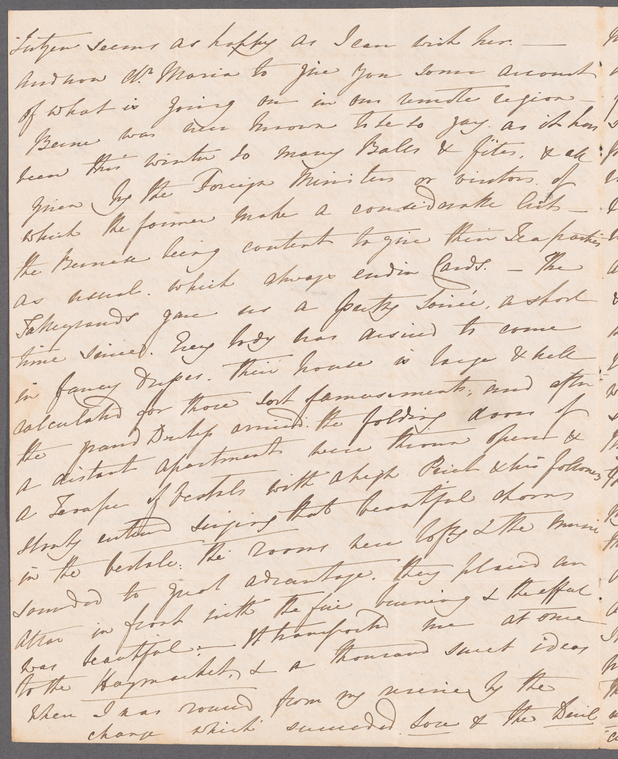 seems as happy as I can wish her. —
And now Dr. Maria to give you some account
of what is going on in our remote region —
Berne was never known to be so gay, as it has
been this winter so many Balls & fêtes, & all
given by the Foreign Ministers or visitors, of
which the former make a considerable list —
the Bernese being content to give their Tea parties
as usual. which always end in Cards. — The
gave us a pretty Soirée, a short
time since. Every body was desired to come
in fancy dresses. Their house is large & well
calculated for those sort of amusements, and after
the grand arrived. the folding doors of
a distant apartment were thrown open &
a Troupe of Vestals with a high Priest & his followers
slowly entered singing that beautiful chorus
in the Vestale: the rooms were lofty & the music
sounded to great advantage. they placed an
altar in front with the fire burning & the effect
was beautiful. — It transported me at once
to the Haymarket, & a thousand sweet ideas
when I was roused from my reverie by the
change which succeeded. Love & the Devil